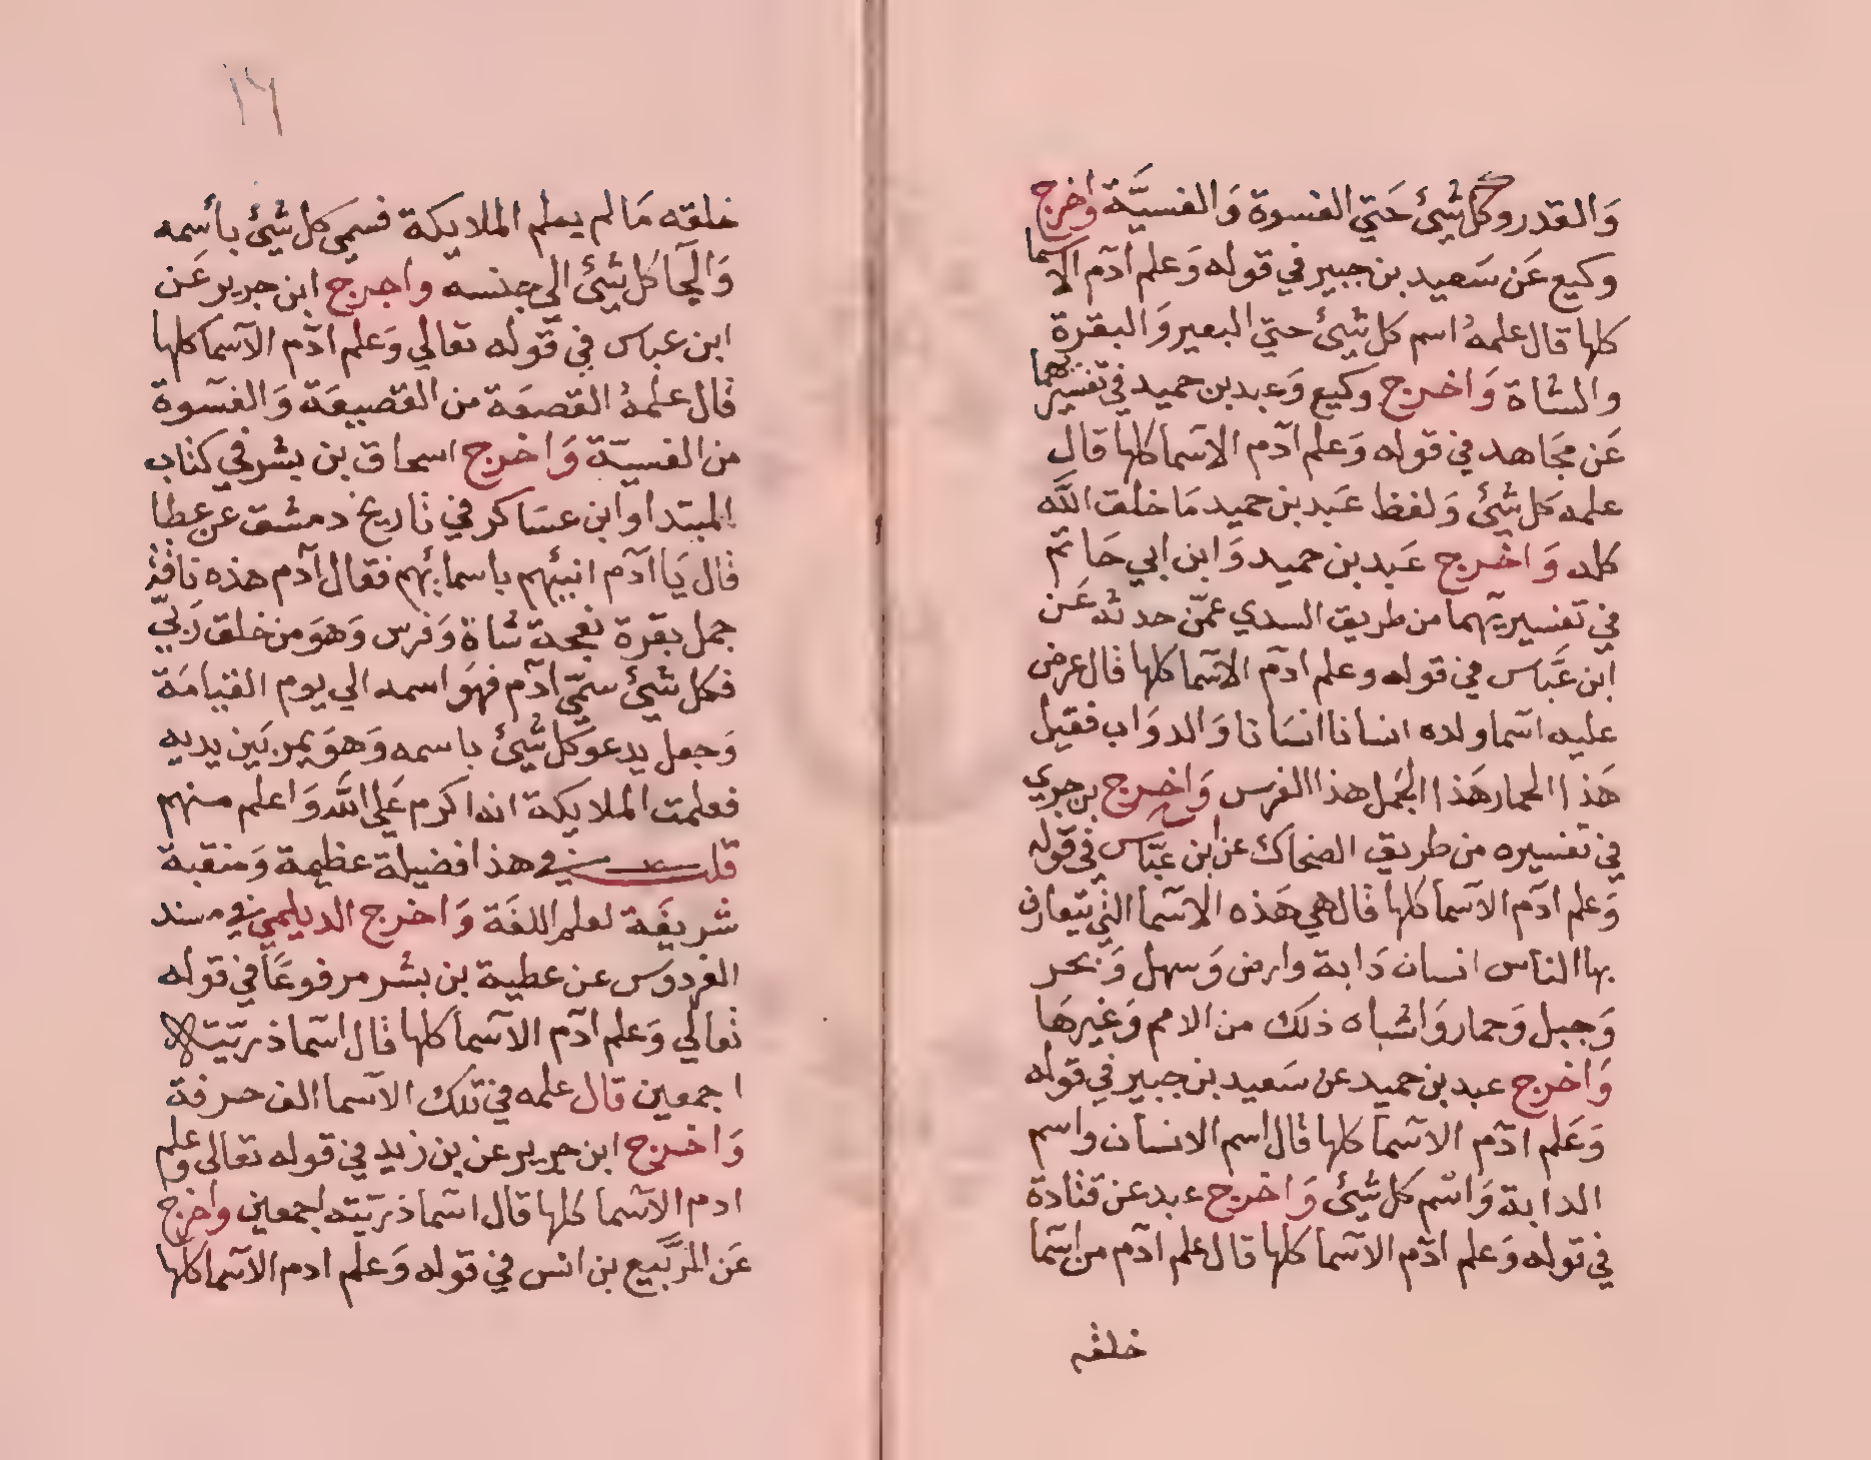 وَالقدر وكل شيئ حَتي الفسوة وَالفسيَّة وَاخرج
وكيع عَن سَعيد بن جبير في قوله وَعلم ادَم الاسما
كلها قال علمهُ اسم كل شيئ حتي البعير وَالبقرة
والشاة وَاخرج وكيع وَعبد بن حميد في تفسيريهما
عَن مجَاهد في قوله وَعلم ادَم الاسَما كلها قال
علمه كل شيئ وَلفظ عَبد بن حميد مَا خلق اللَّه
كله وَاخرج عَبد بن حميد وَابن ابي حَاتم
في تفسيريهما من طريق السدي عمّن حدثه عَن
ابن عَّباس في قوله وعلم ادَم الاسَما كلها قال عرض
عليه اسَما ولده انسانا انسَانا وَالدوَاب فقيل
هَذا الحمار هَذا الجَمل هذا الفرس وَاخرج بن جرير
في تفسيره من طريق الضحاك عن ابن عبَّاس في قوله
وَعلم ادَم الاسَما كلها قال هي هَذه الاسَما التي يتعارف
بها الناس انسان دَابة وارض وَسهل وَبحر
وَجبل وَحمار وَاشباه ذلك من الامم وَغيرهَا
وَاخرج عبد بن حميد عن سَعيد بن جبير في قوله
وَعَلم ادَم الاسَما كلها قال اسم الانسان واسم
الدابة وَاسْم كل شيئ وَاخرج عبد عن قتادة
في قوله وَعلم ادَم الاسَما كلها قال علم ادَم من اسَما
خلقه
١٦
خلقه مَا لم يعلم الملايكة فسمي كل شيئ بأسِمه
وَالجَا كل شيئ الي جنسه واجرج ابن جرير عَن
ابن عباس في قوله تعالي وَعلم ادَم الاسَما كلها
قال علمهُ القصعَة من القصيعَة وَالفسَوة
من الفسيَّة وَاخرج اسحاق بن بشر في كتاب
المبتدا وابن عسَاكر في تاريخ دمشق عن عطا
قال يَا ادَم انبيئهم باسمايهم فقال ادَم هذه ناقة
جمل بقرة نعجة شاة وَفرس وَهوَ من خلق رَبي
فكل شيئ سمّي ادَم فهوَ اسمه الي يوم القيامَة
وَجعل يدعو كل شيئ باسمه وَهوَ يمر بَين يديه
فعلمت الملايكة انه اكرم عَلي اللَّه وَاعلم منهم
قلت في هذا فضيلة عظيمة وَمنقبة
شريفَة لعلم اللغَة وَاخرج الديلمي في مسند
الفردوَس عن عطية بن بشر مرفوعًا في قوله
تعالي وَعلم ادَم الاسَما كلها قال اسَما ذريَّته
اجمعين قال علمه في تلك الاسَما الف حرفة
وَاخرج ابن جرير عن بن زيد في قوله تعالي وَعلم
ادم الاسَما كلها قال اسَما ذريَّته اجمعين واخرج
عَن الربَّيع بن انس في قوله وَعلم ادم الاسَما كلها